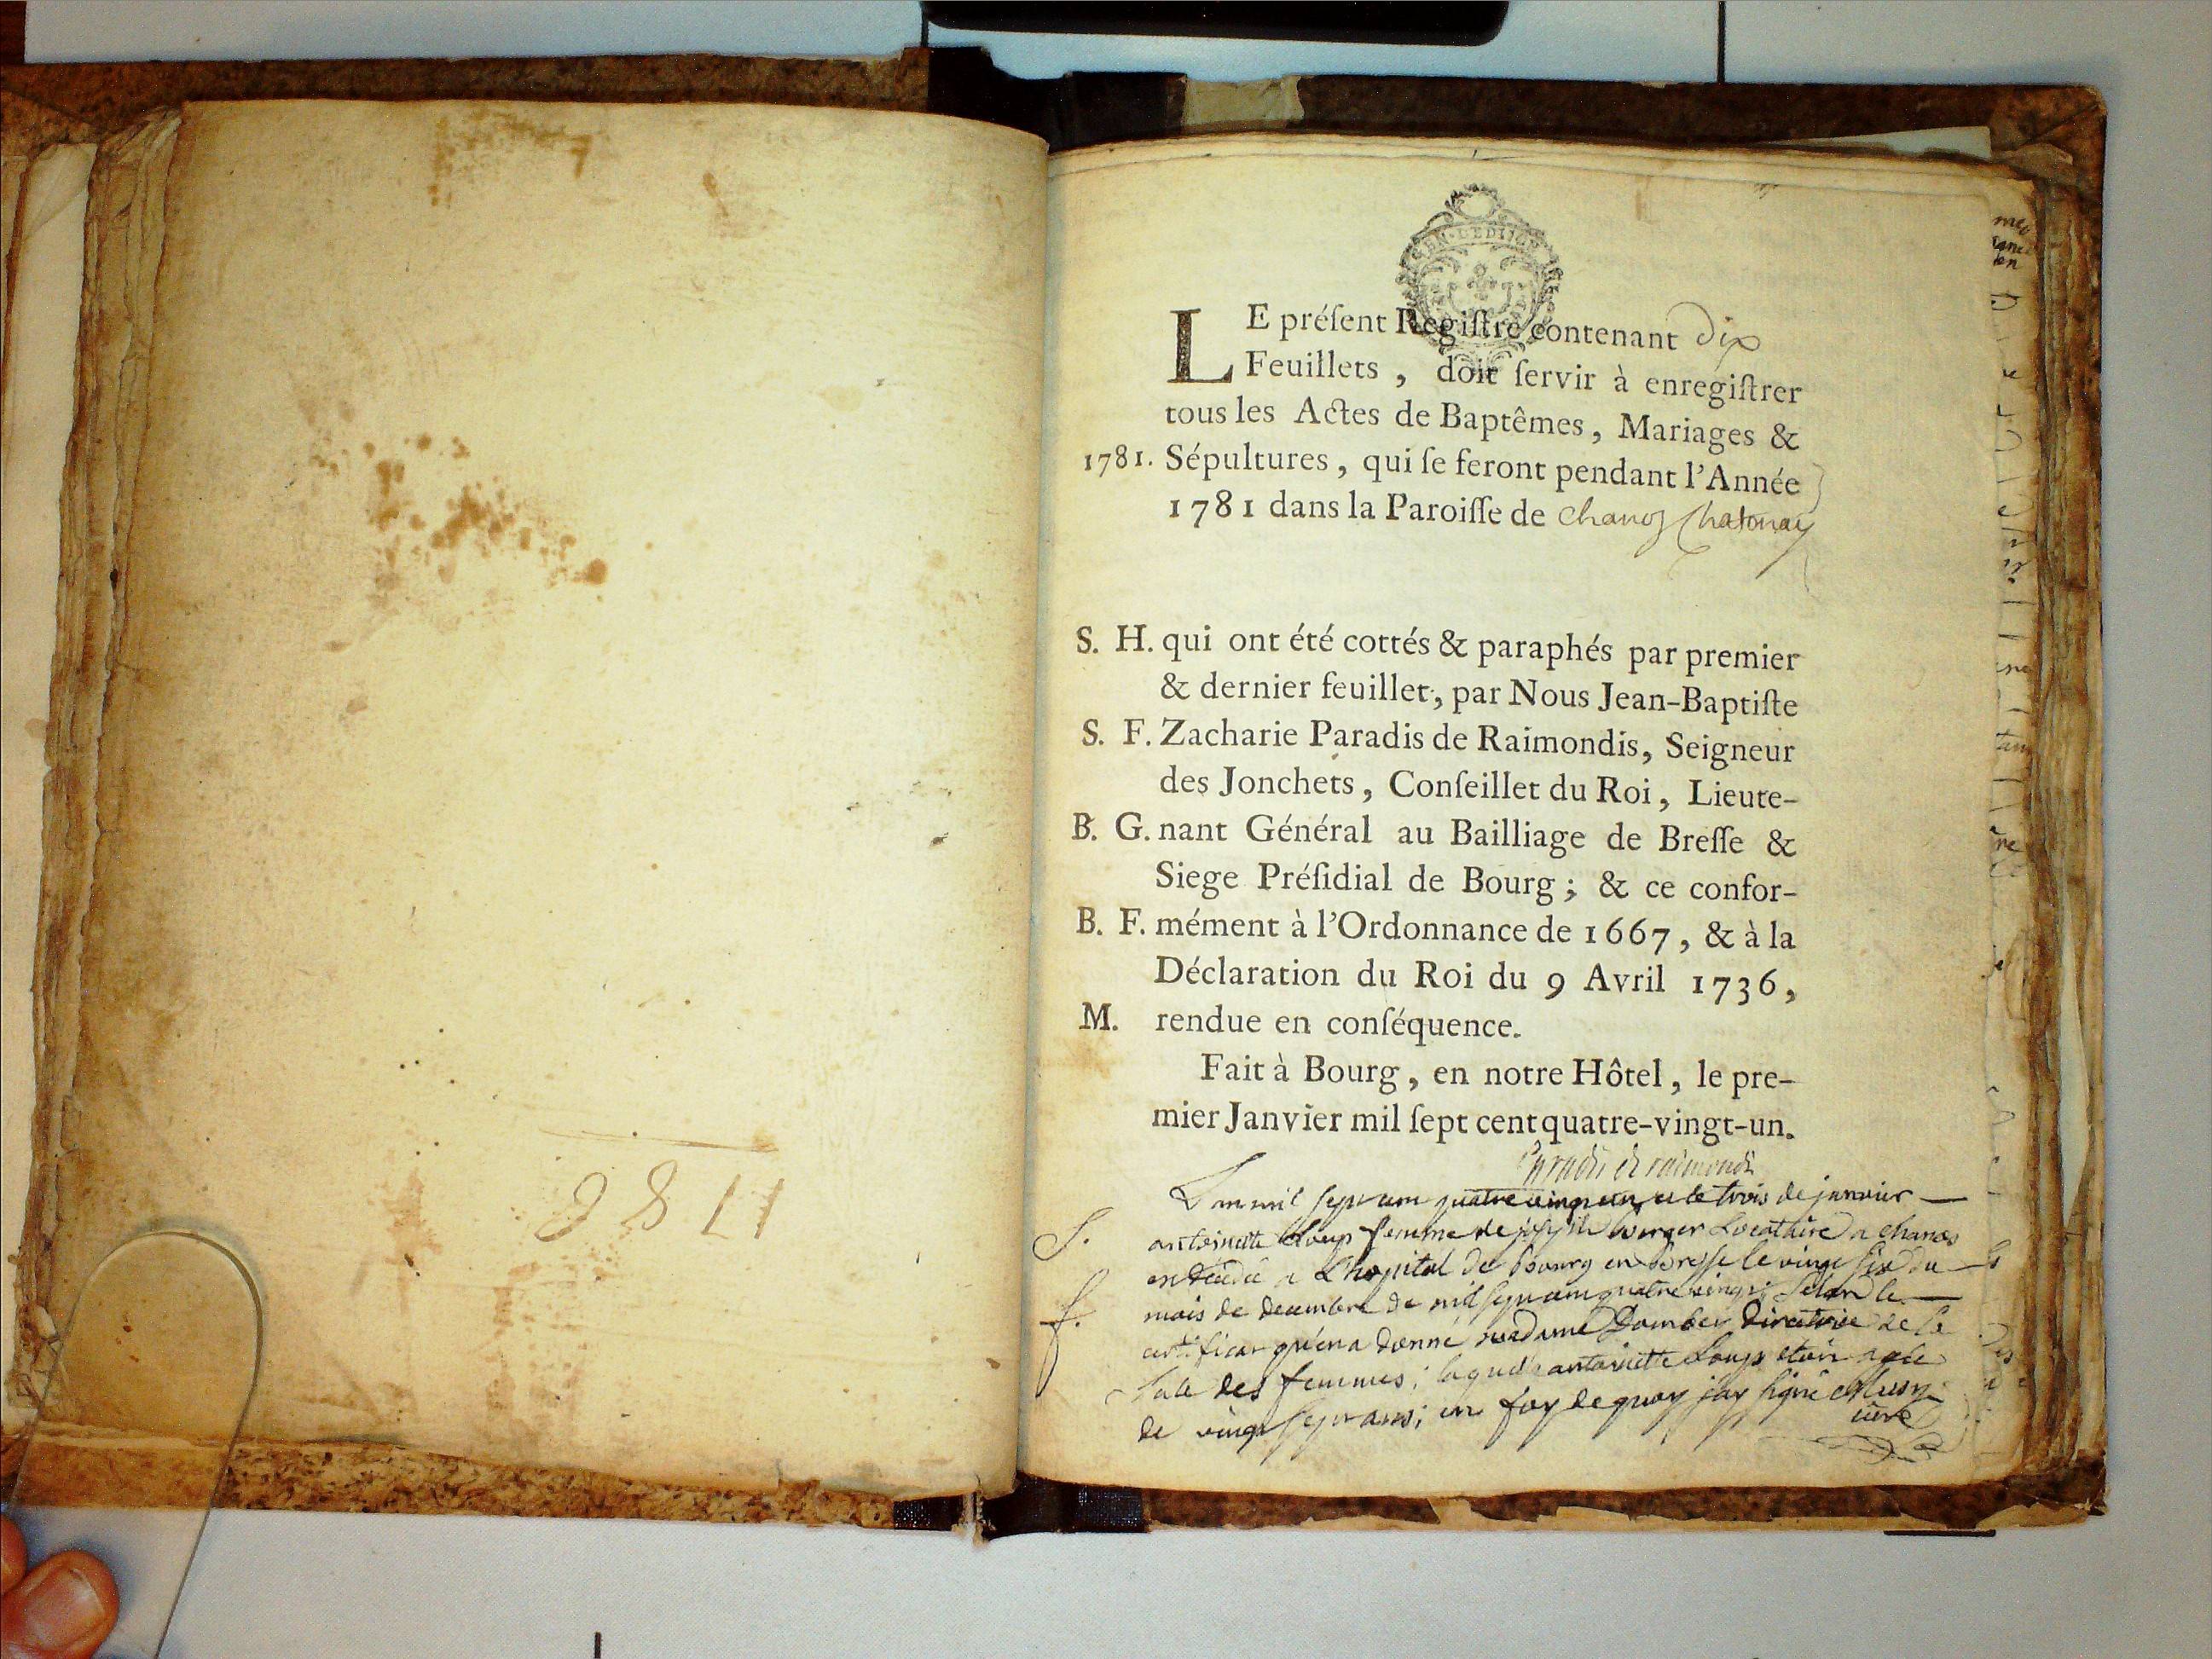 GEN. DE DIJON
LE préſent Regiſtre contenant dix
Feuillets, doit ſervir à enregiſtrer
tous les Actes de Baptêmes, Mariages &
1781. Sépultures, qui ſe feront pendant l'Année
1781 dans la Paroiſſe de chanoz Chatonay
S. H. qui ont été cottés & paraphés par premier
& dernier feuillet, par Nous Jean-Baptiſte
S. F. Zacharie Paradis de Raimondis, Seigneur
des Jonchets, Conſeillet du Roi, Lieute-
B. G. nant Général au Bailliage de Breſſe &
Siege Préſidial de Bourg; & ce confor-
B. F. mément à l'Ordonnance de 1667, & à la
Déclaration du Roi du 9 Avril 1736,
M. rendue en conſéquence.
Fait à Bourg, en notre Hôtel, le pre-
mier Janvier mil ſept cent quatre-vingt-un.
Paradis de raimondis
L'an mil sept cent quatre vingt un et le trois de janvier
S. antoinette Loup femme de joseph berger Locataire a chanos
est décédée a L'hopital de Bourg en bresse le vingt six du
f. mois de decembre de mil sept cent quatre vingt; selon le
certificat qu'en a donné madame directrice de la
sale des femmes; laquelle antoinette Loup etoit agée
de vingt sept ans; en foy de quoy jay signé
curé